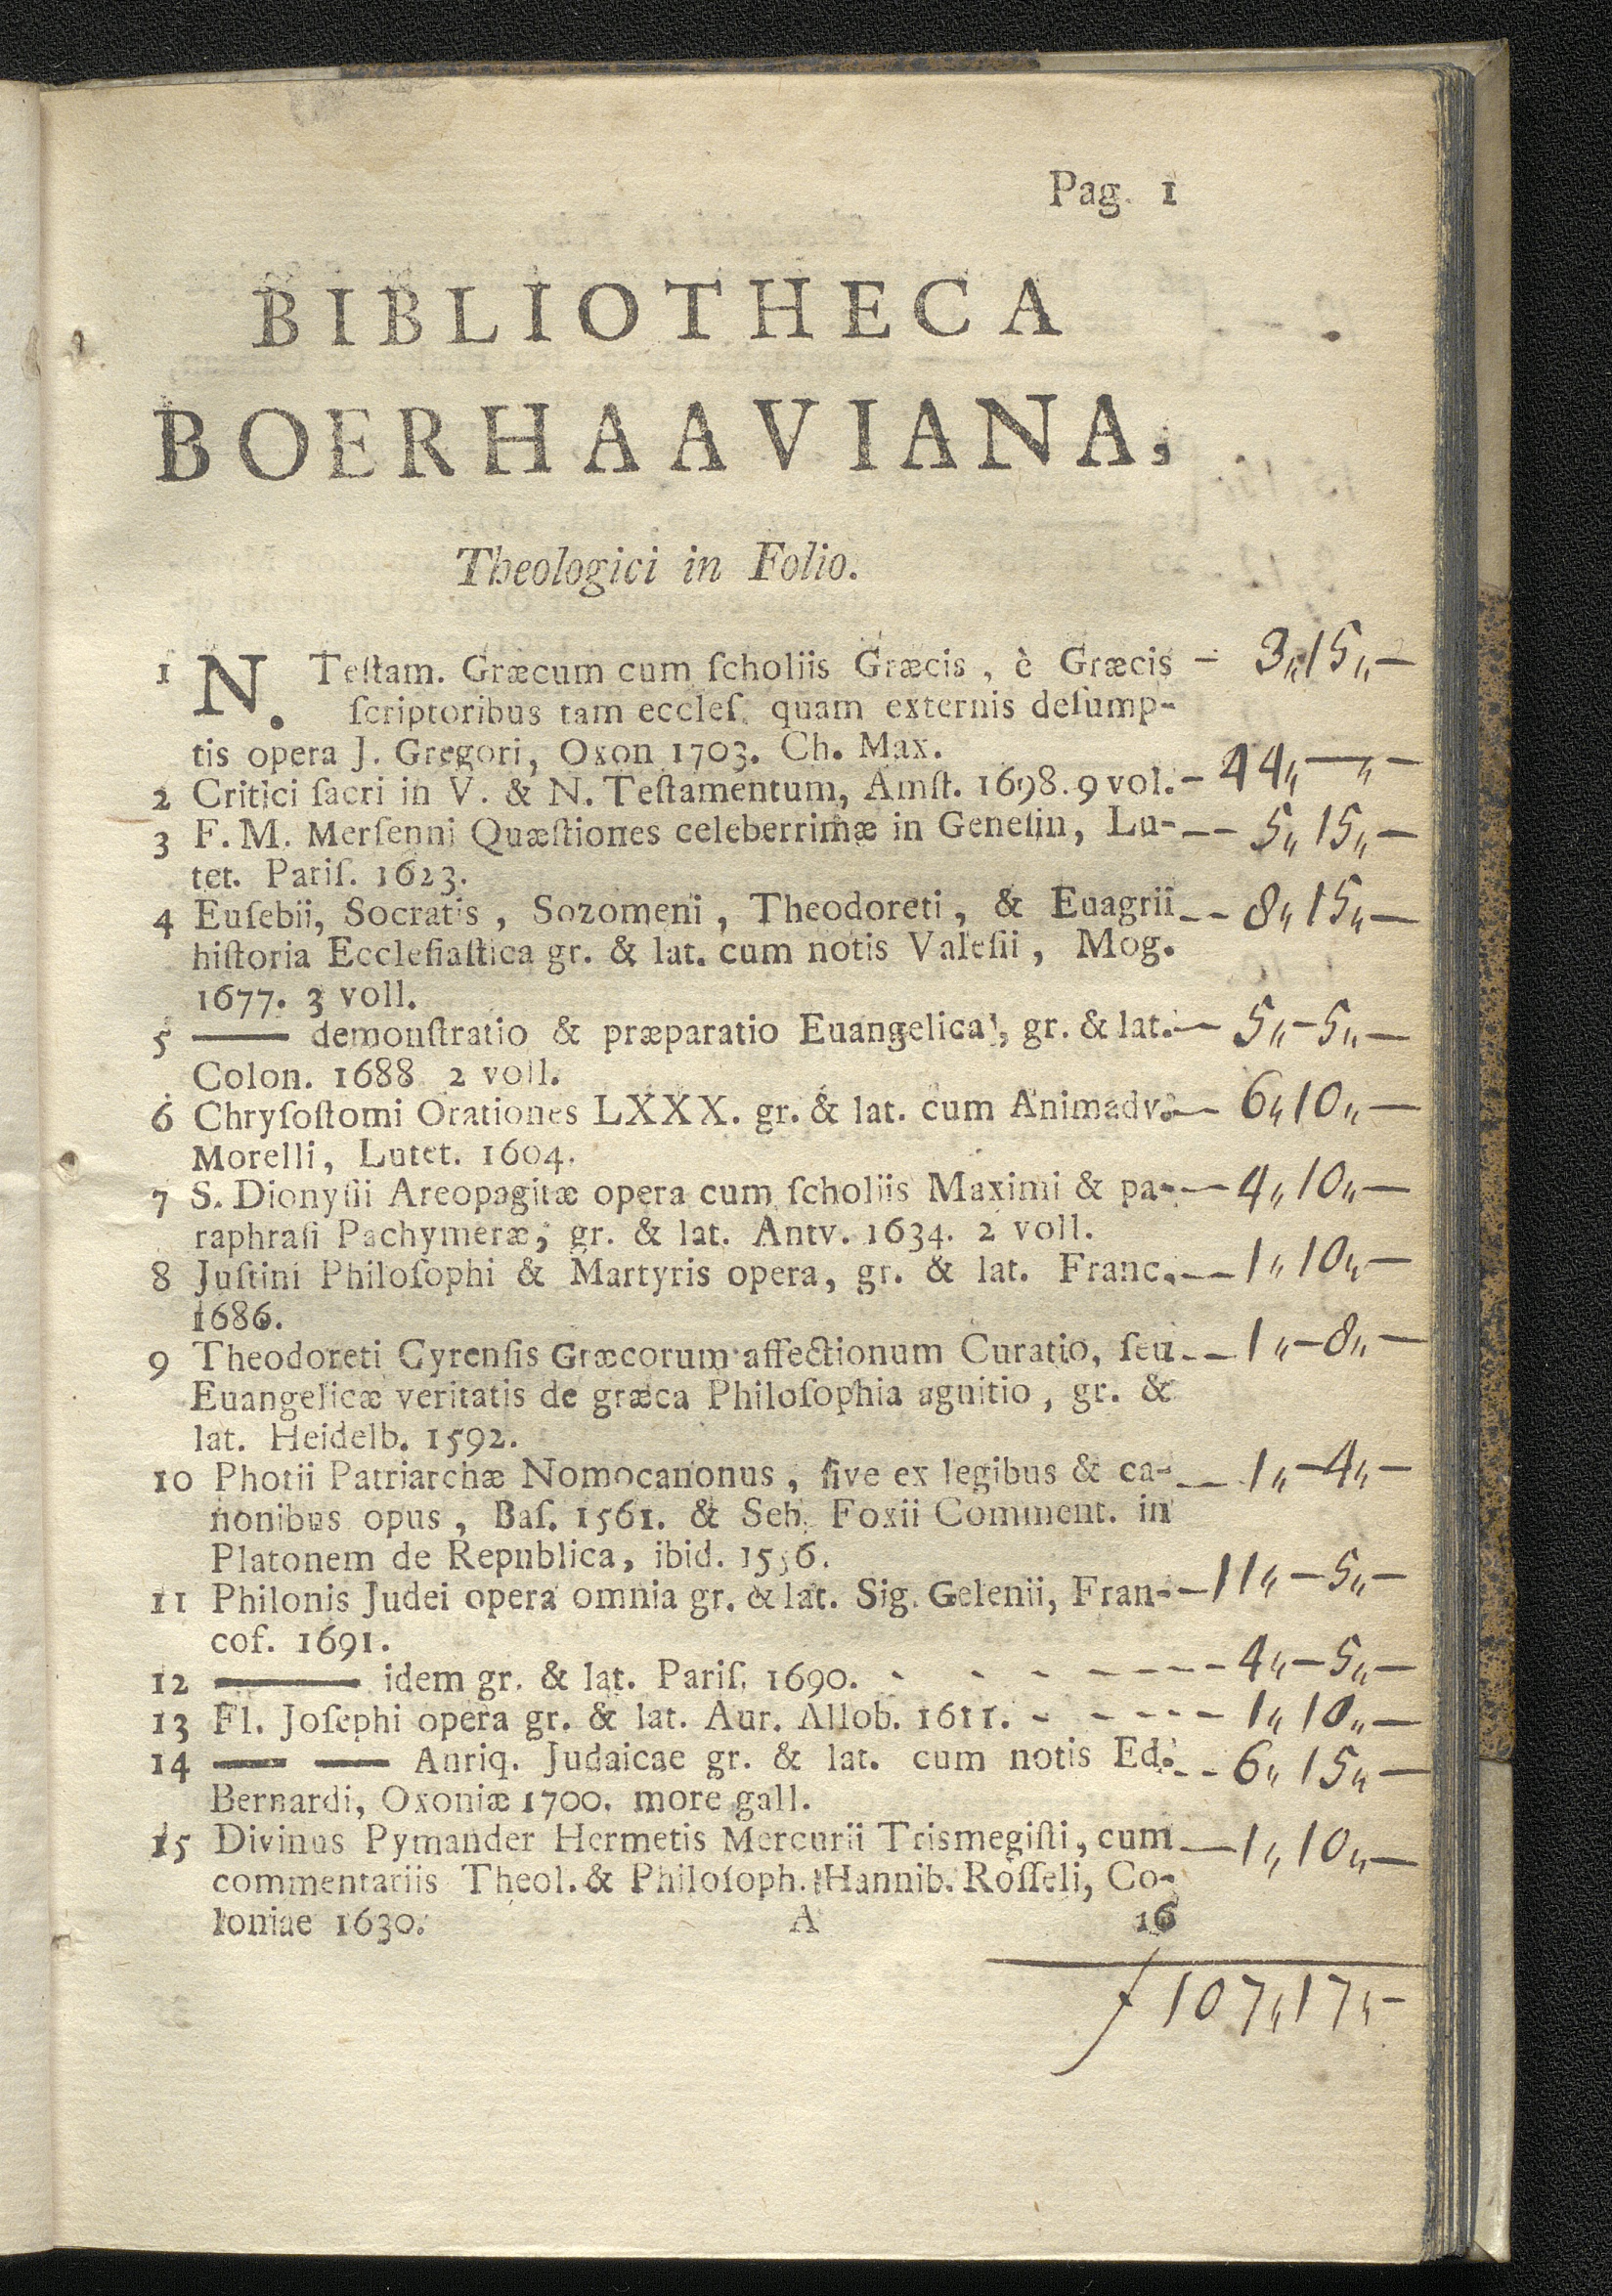 Pag. 1
BIBLIOTHECA
BOERHAAVIANA,
Theologici in Folio.
1 N. Teſtam. Græcum cum ſcholiis Græcis, è Græcis - 3,,15,,-
ſcriptoribus tam eccleſ. quam externis deſump-
tis opera J. Gregori, Oxon 1703. Ch. Max.
2 Critici ſacri in V. & N. Teſtamentum, Amſt. 1698. 9 vol. - 44,,-,,-
3 F. M. Merſenni Quæſtiones celeberrimæ in Geneſin, Lu- -- 5,,15,,-
tet. Pariſ. 1623.
4 Euſebii, Socratis, Sozomeni, Theodoreti, & Euagrii -- 8,,15,,-
hiſtoria Eccleſiaſtica gr. & lat. cum notis Valeſii, Mog.
1677. 3 voll.
5 —— demonſtratio & præparatio Euangelica, gr. & lat. - 5,,-5,,-
Colon. 1688 2 voll.
6 Chryſoſtomi Orationes LXXX. gr. & lat. cum Animadv. - 6,,10,,-
Morelli, Lutet. 1604.
7 S. Dionyſii Areopagitæ opera cum ſcholiis Maximi & pa- -- 4,,10,,-
raphraſi Pachymeræ, gr. & lat. Antv. 1634. 2 voll.
8 Juſtini Philoſophi & Martyris opera, gr. & lat. Franc. -- 1,,10,,-
1686.
9 Theodoreti Cyrenſis Græcorum affectionum Curatio, ſeu -- 1,,-8,,-
Euangelicæ veritatis de græca Philoſophia agnitio, gr. &
lat. Heidelb. 1592.
10 Photii Patriarchæ Nomocanonus, ſive ex legibus & ca- -- 1,,-4,,-
nonibus opus, Baſ. 1561. & Seb. Foxii Comment. in
Platonem de Repnblica, ibid. 1556.
11 Philonis Judei opera omnia gr. & lat. Sig. Gelenii, Fran- - 11,,-5,,-
cof. 1691.
12 —— idem gr. & lat. Pariſ. 1690. - - - - - - - - 4,,-5,,-
13 Fl. Joſephi opera gr. & lat. Aur. Allob. 1611. - - - - - - 1,,10,,-
14 —— —— Antiq. Judaicae gr. & lat. cum notis Ed. -- 6,,15,,-
Bernardi, Oxoniæ 1700. more gall.
15 Divinus Pymander Hermetis Mercurii Trismegiſti, cum - 1,,10,,-
commentariis Theol. & Philoſoph. Hannib. Roſſeli, Co-
loniae 1630.
A 16
ƒ 107,,17,,-